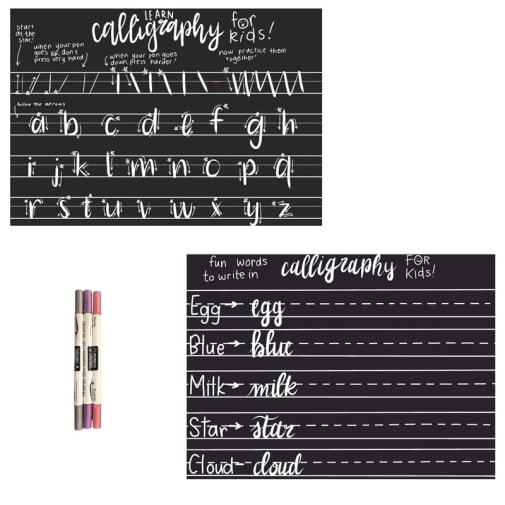 LEARN
calligraphy for kids!
start at the star!
when your pen goes up, don't press very hard!
when your pen goes down, press harder!
now practice them together!
follow the arrows
a b c d e f g h
i j k l m n o p q
r s t u v w x y z
fun words to write in calligraphy FOR Kids!
Egg → egg
Blue → blue
Milk → milk
Star → star
Cloud → cloud